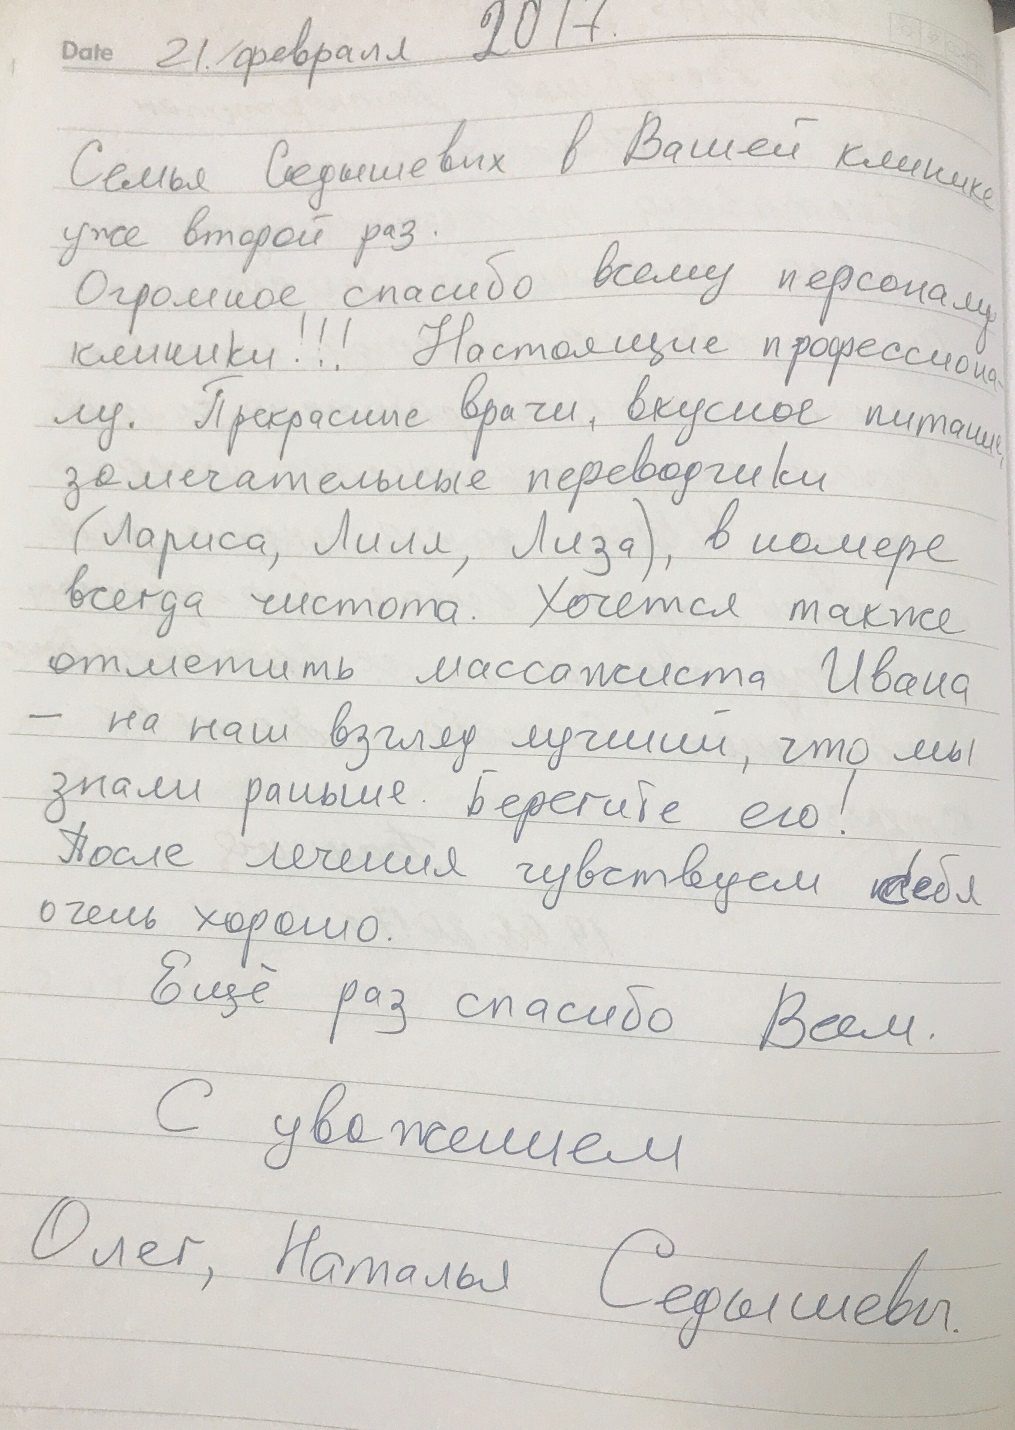 Date 21. февраля 2017.
Семья Седышевых в Вашей клинике
уже второй раз.
Огромное спасибо всему персоналу
клиники!!! Настоящие профессиона-
лу. Прекрасные врачи, вкусное питание,
замечательные переводчики
(Лариса, Лиля, Лиза), в номере
всегда чистота. Хочется также
отметить массажиста Ивана
– на наш взгляд лучший, что мы
знали раньше. Берегите его!
После лечения чувствуем себя
очень хорошо.
Ещё раз спасибо Всем.
С уважением
Олег, Наталья Седышевы.